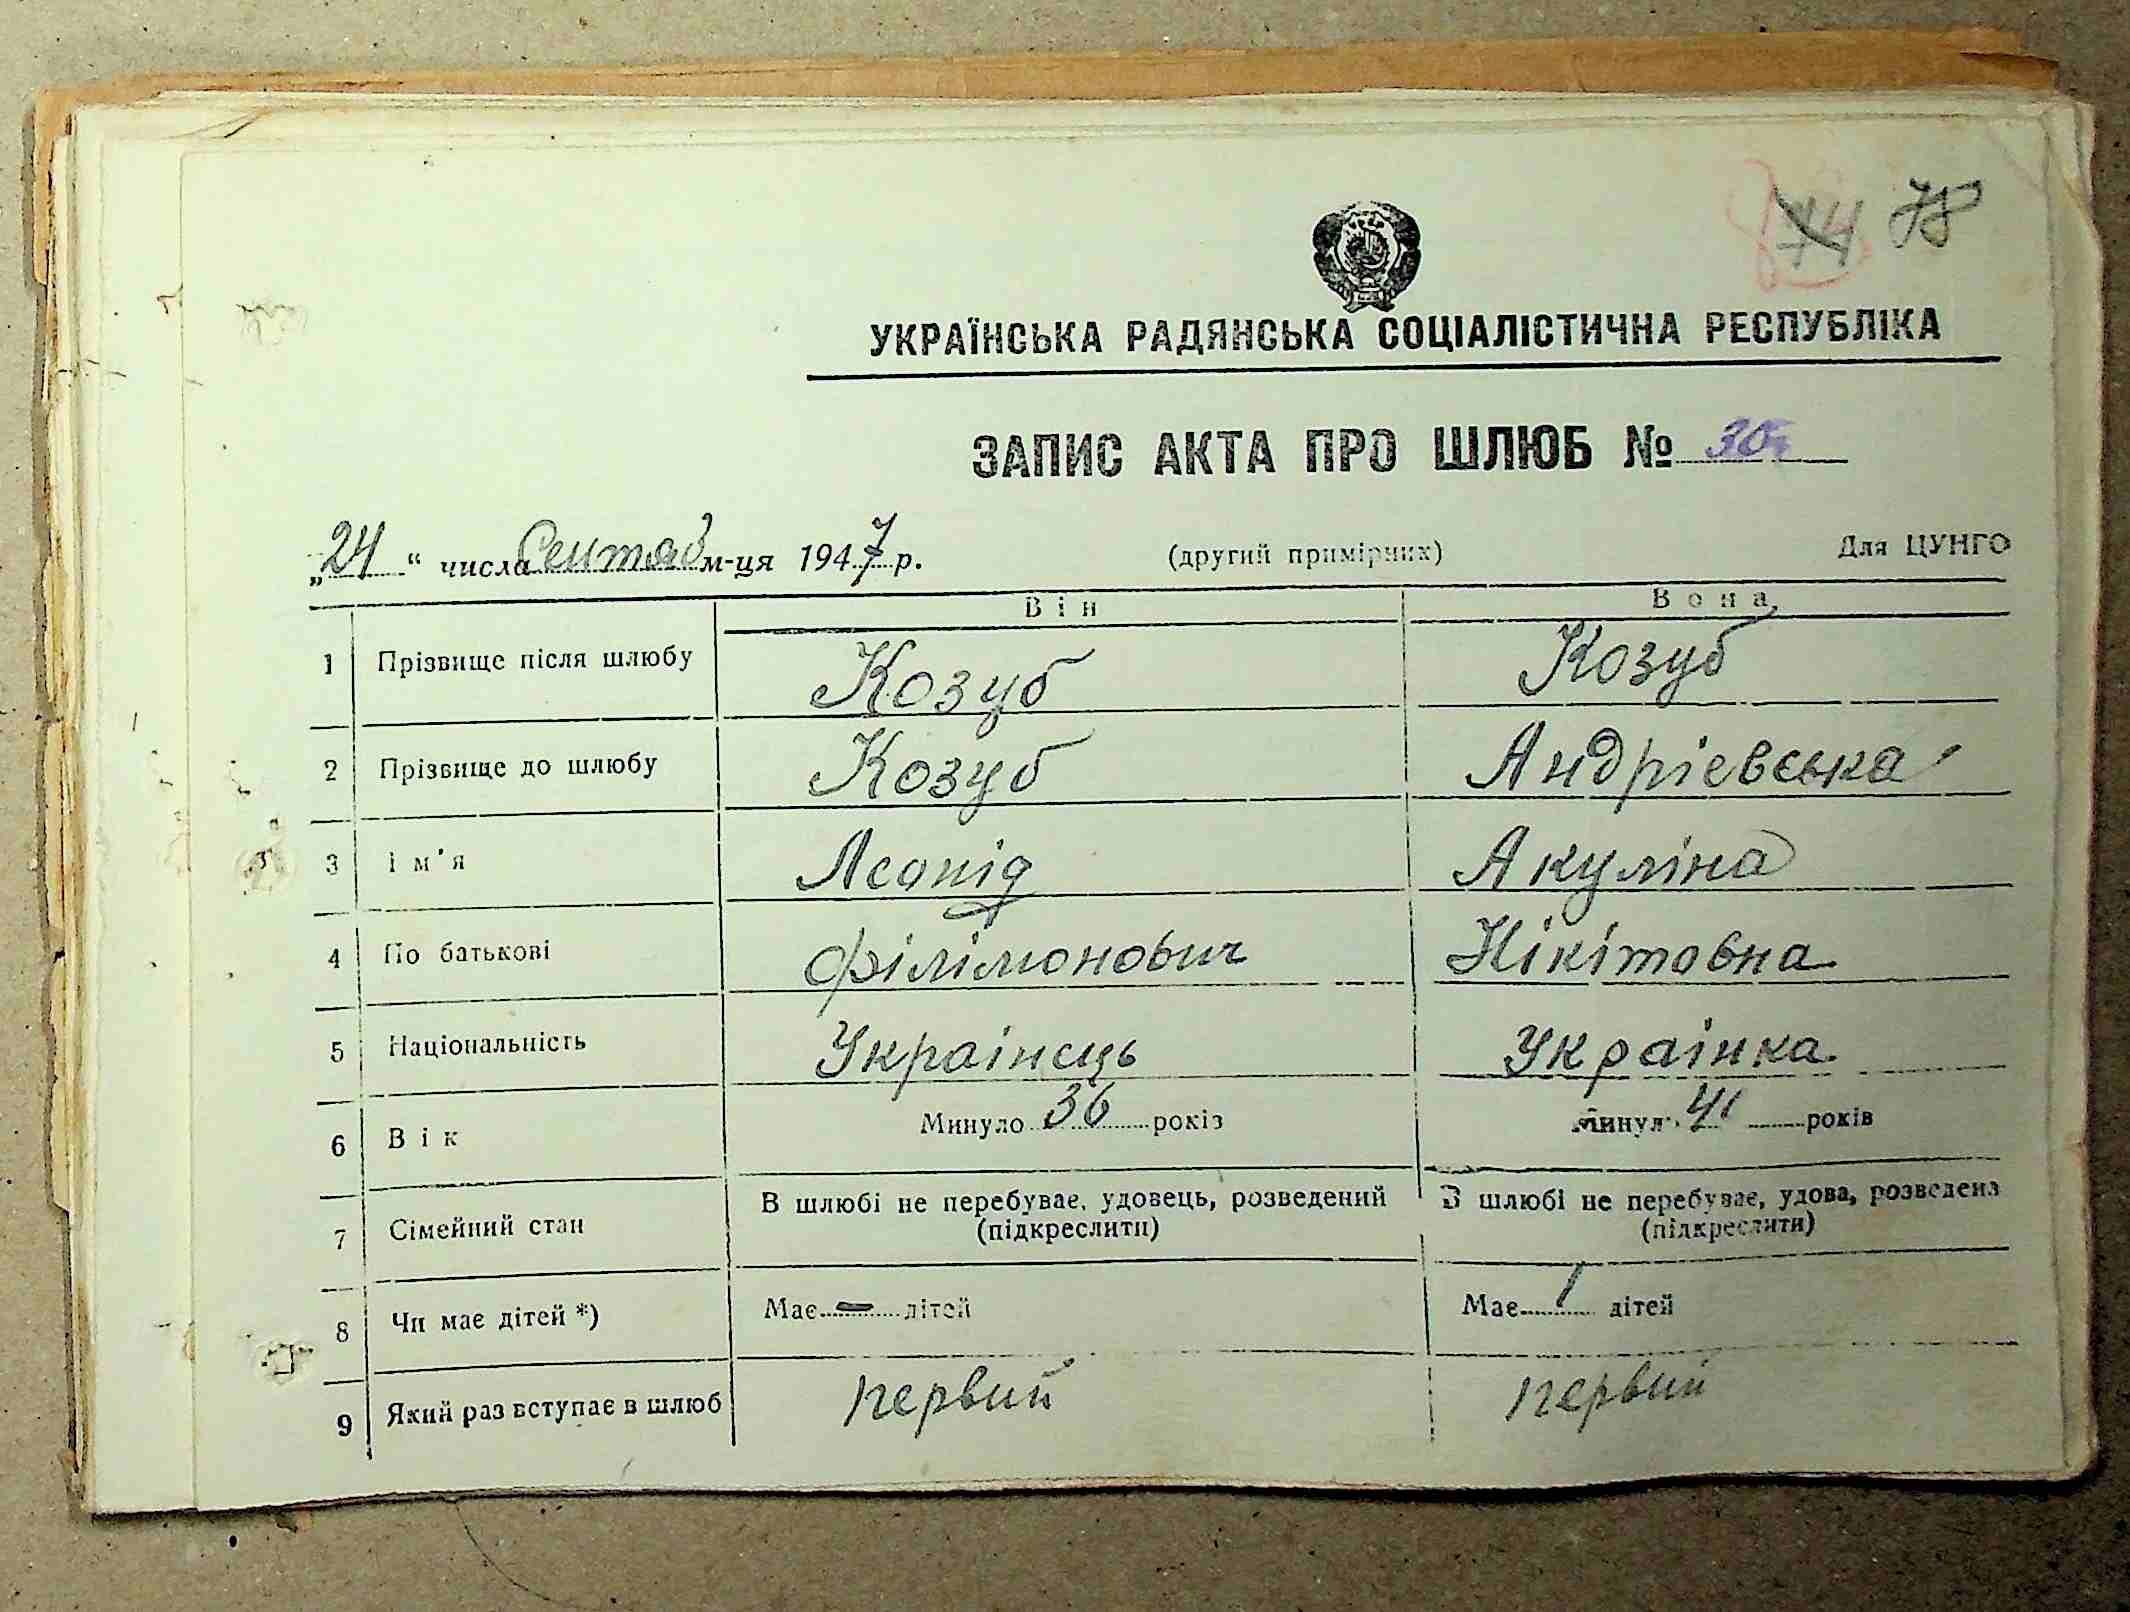 78
УКРАЇНСЬКА РАДЯНСЬКА СОЦІАЛІСТИЧНА РЕСПУБЛІКА
ЗАПИС АКТА ПРО ШЛЮБ №
„24“ числа Сентяб м-ця 1947 р. (другий примірник) Для ЦУНГО
Він Вона
1 Прізвище після шлюбу Козуб Козуб
2 Прізвище до шлюбу Козуб Андрієвська
3 Ім'я Леонід Акуліна
4 По батькові Філімонович Нікітовна
5 Національність Українець Українка
6 Вік Минуло 36 років Минуло 41 років
7 Сімейний стан В шлюбі не перебуває, удовець, розведений В шлюбі не перебуває, удова, розведена
(підкреслити) (підкреслити)
8 Чи має дітей *) Має - дітей Має 1 дітей
9 Який раз вступає в шлюб первий первий